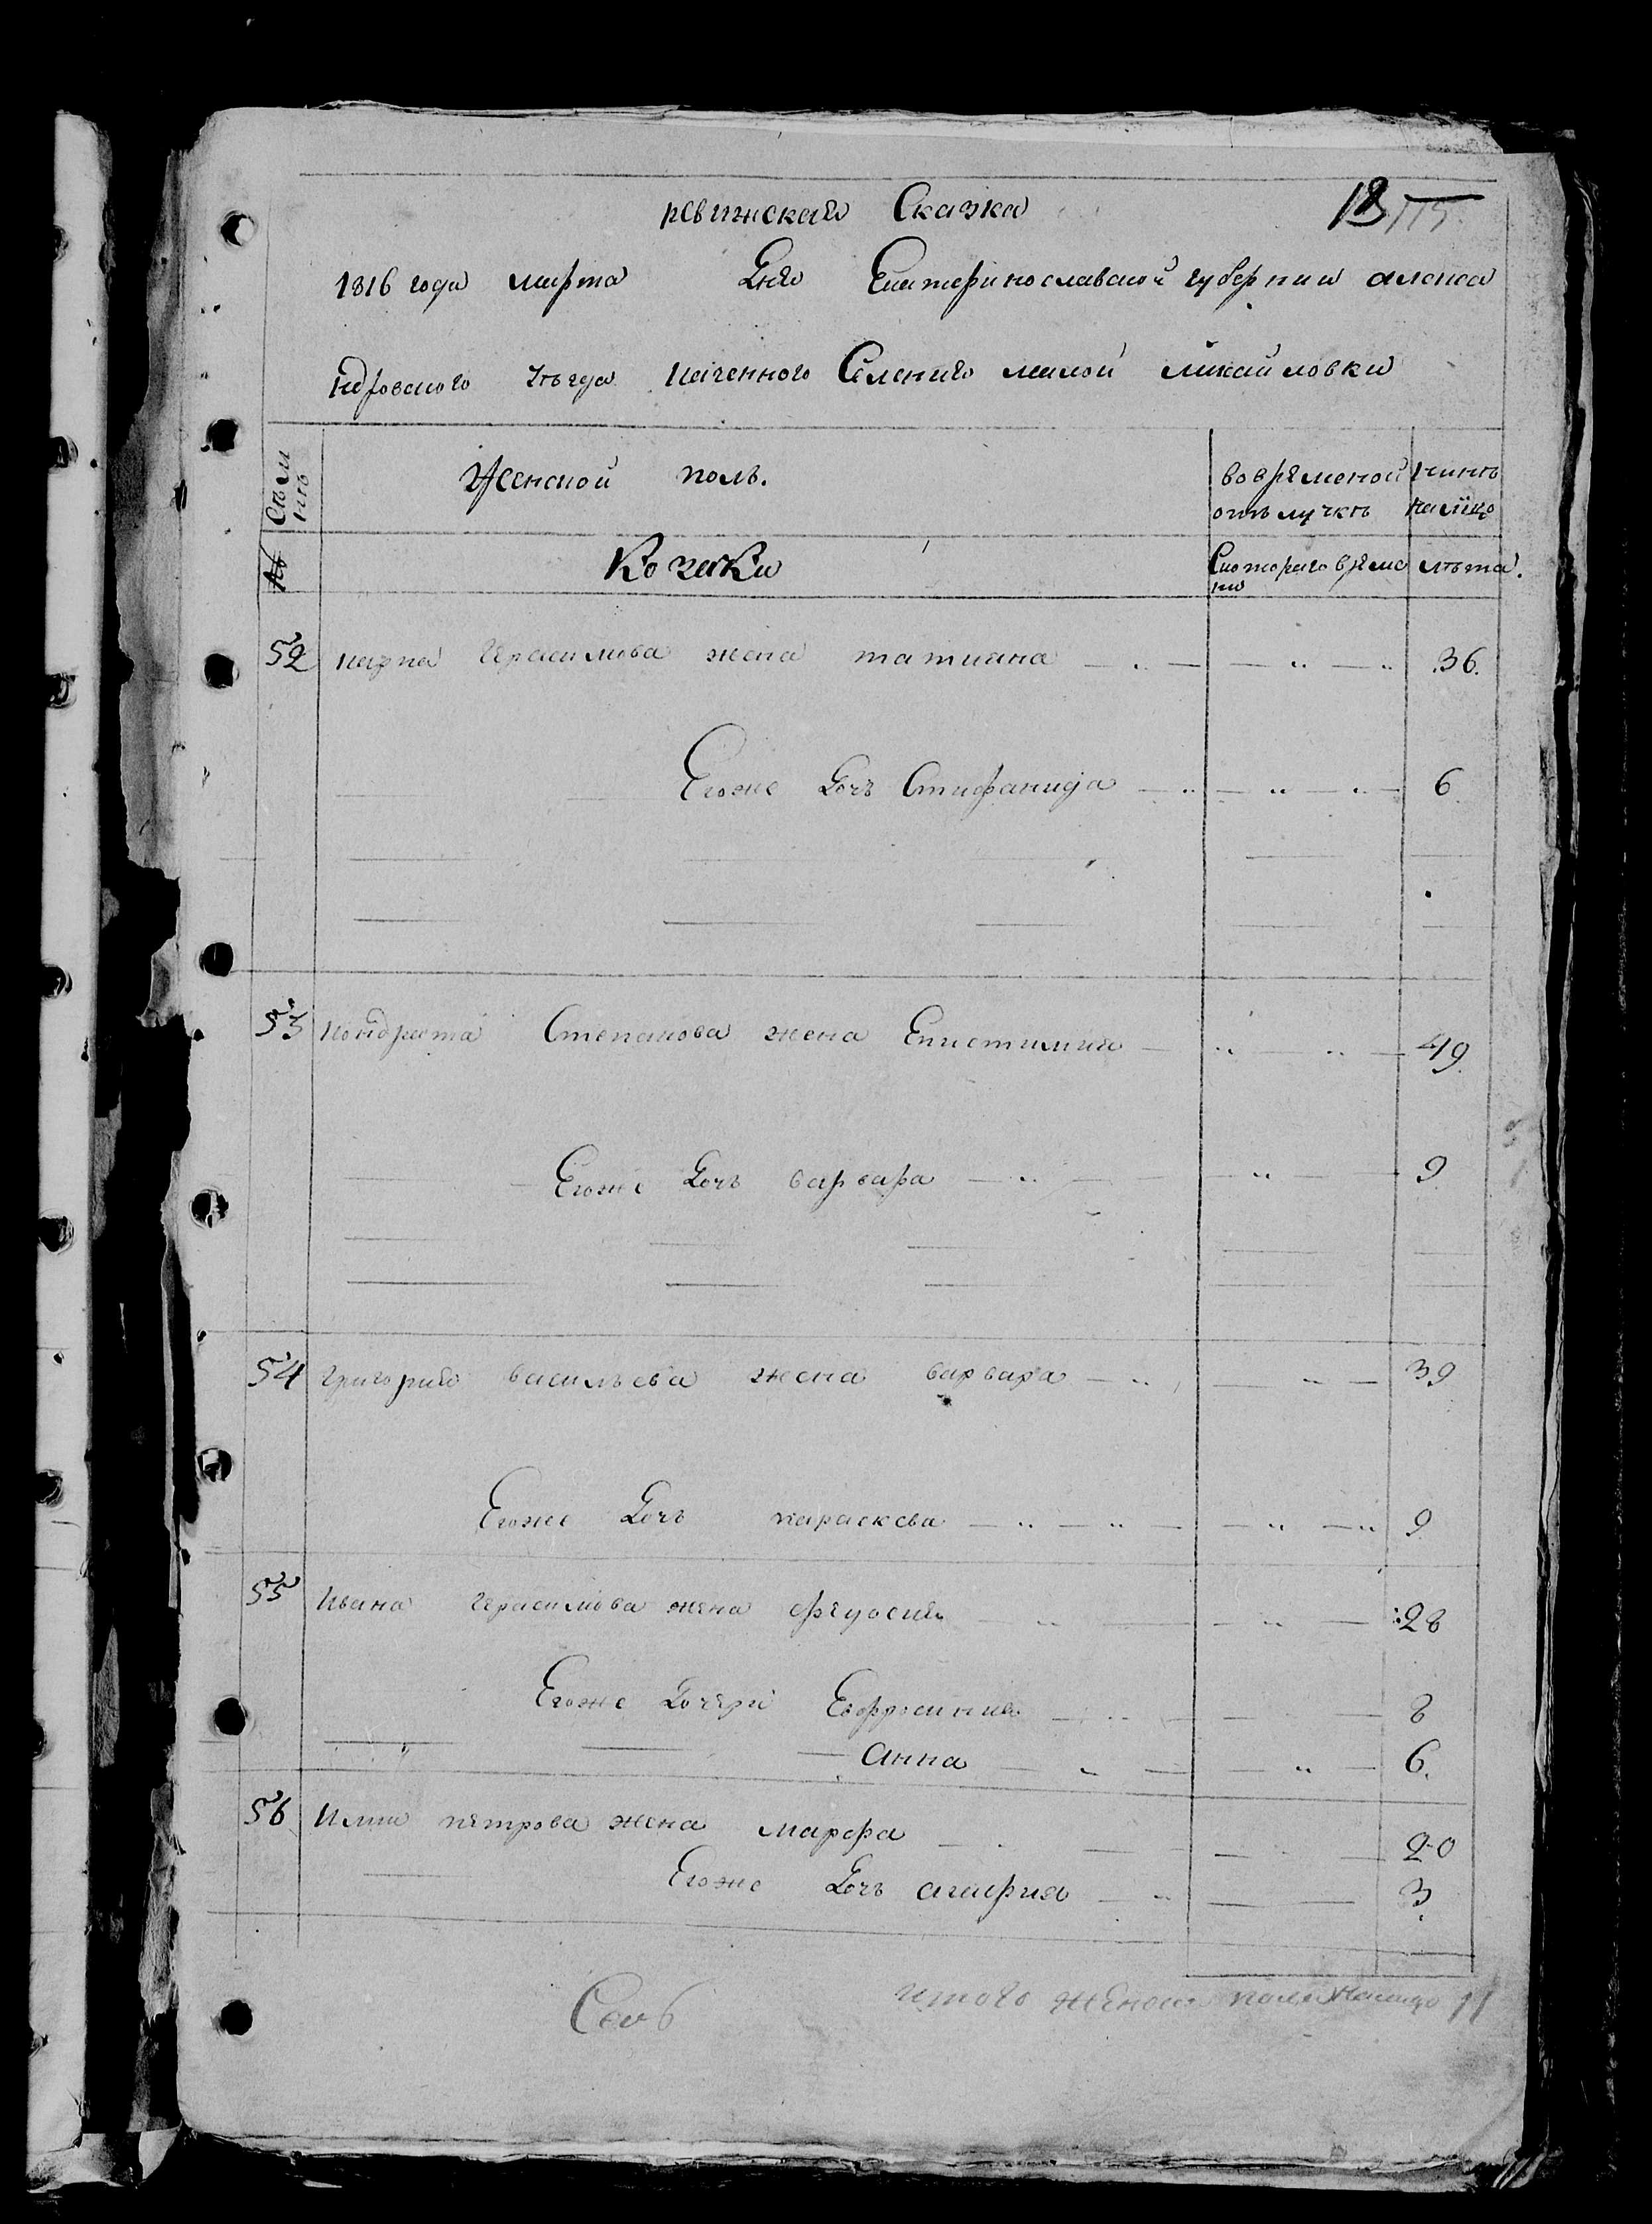 ревижская Сказка
18
1816 года марта Дня Екатеринославской губернии алекса
ндровского уѣзда казенного Селения малой михайловки
Женской полъ.
во временой
отълучкѣ
нинѣ
налицо
№
Козаки
Скоторого време
ни
лѣта.
52 карпа Герасимова жена татияна 36.
Егоже Дочь Стифанида 6
53 кондрата Степанова жена Епистимия 49
Егоже Дочь варвара 9
54 григория васильева жена варвара 39
Егоже Дочь параскева 9
55 Ивана Герасимова жена феудосия 28
Егоже Дочери Евфросиния 8
Анна 6.
56 Илии петрова жена марфа 20
Егоже Дочь агафия 3
итого женска полу налицо 11